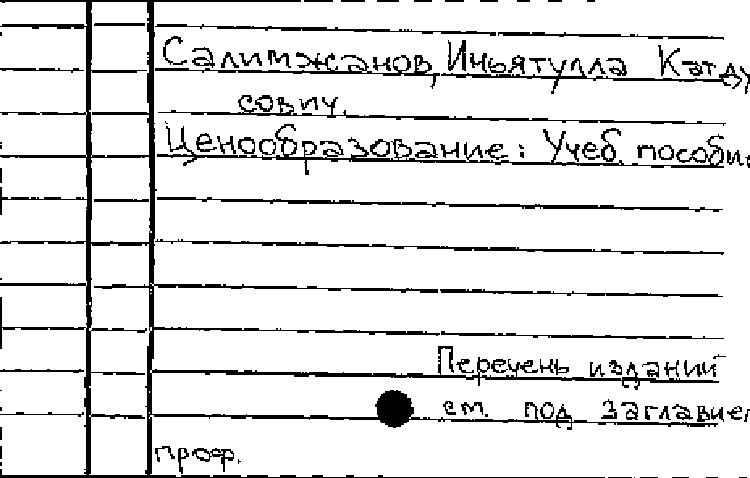 Салимжанов, Иньятулла Катду
сович.
Ценообразование: Учеб. пособие
Перечень изданий
см. под заглавием
проф.